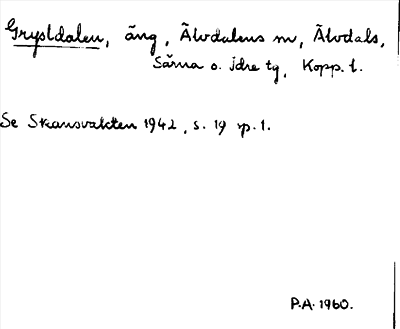 Grystdalen, äng, Älvdalens m, Älvdals,
Särna o. Idre tg, Kopp. l.
Se Skansvakten 1942, s. 19 sp. 1.
P.A. 1960.